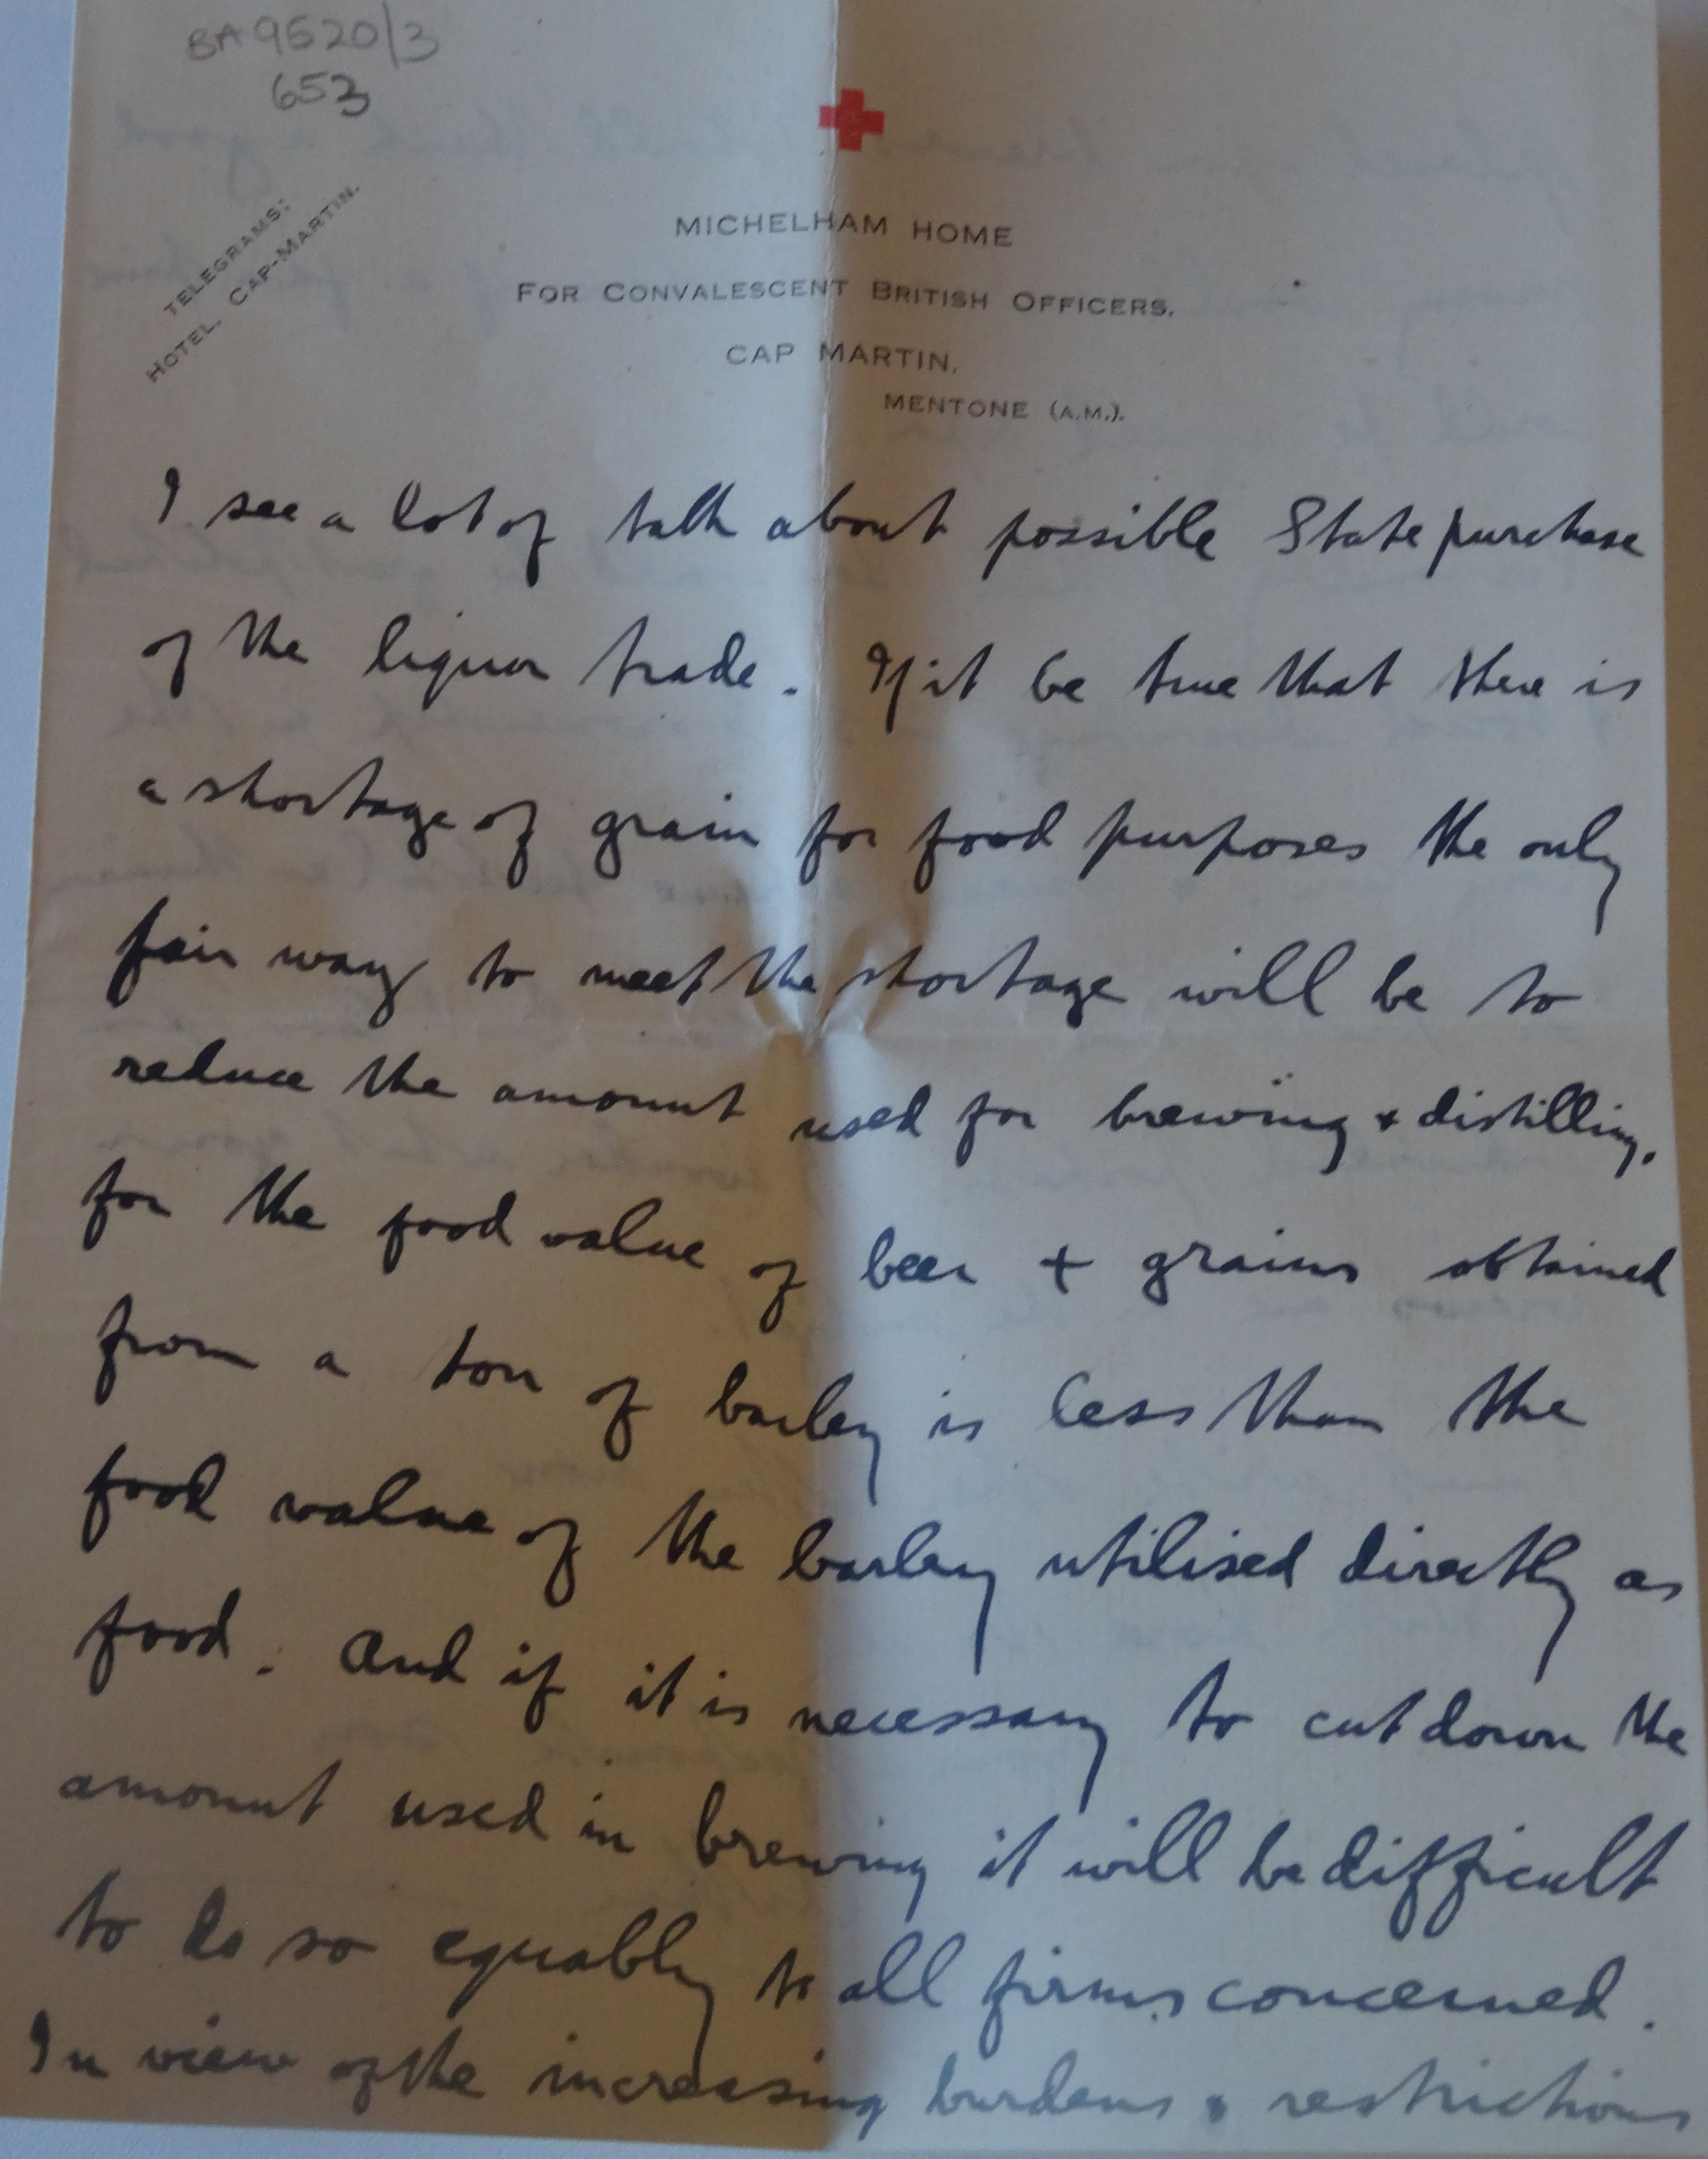 BA 9520/3
653
TELEGRAMS:
HOTEL. CAP-MARTIN.
MICHELHAM HOME
FOR CONVALESCENT BRITISH OFFICERS,
CAP MARTIN,
MENTONE (A.M.).
I see a lot of talk about possible State purchase
of the liquor trade. If it be true that there is
a shortage of grain for food purposes the only
fair way to meet the shortage will be to
reduce the amount used for brewing & distilling.
for the food value of beer + grains obtained
from a ton of barley is less than the
food value of the barley utilised directly as
food. And if it is necessary to cut down the
amount used in brewing it will be difficult
to do so equably to all firms concerned.
In view of the increasing burdens & restrictions